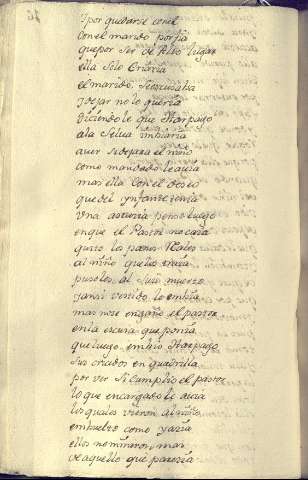 y por quedarse con el
con el marido porfia
que por ser de
ella solo criaria
el marido, se escusaba
y dejar no lo queria
diciendole que Harpago
a la selva imbiaria
a ver si dejara el niño
como mandado le avia
mas ella con el deseo
que del ynfante tenia
una astucia penso luego
en que el Pastor no caia
quito los paños Reales
al niño que los traia
pusolos al suio muerto
y ansi vestido lo embia
mas no se engaño el pastor
en la escusa que ponia
que luego embio Harpago
sus criados en quadrilla
por ver si cumplio el pastor
lo que encargado le avia
los quales vieron al niño
embuelto como yazia
ellos no miraron, mas
de aquello que parezia